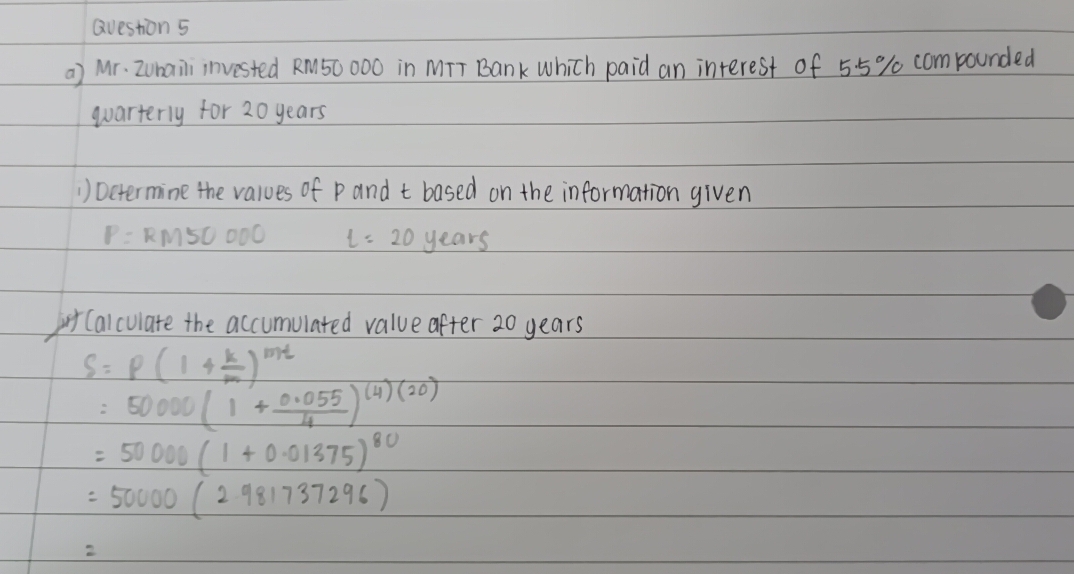 Question 5
a) Mr. Zuhaili invested RM50 000 in MTT Bank which paid an interest of 5.5% compounded
quarterly for 20 years
i) Determine the values of P and t based on the information given
P = RM50 000 t = 20 years
Calculate the accumulated value after 20 years
S = P ( 1 + k/m )^mt
= 50 000 ( 1 + 0.055/4 )^(4)(20)
= 50 000 ( 1 + 0.01375 )^80
= 50000 ( 2.981737296 )
=